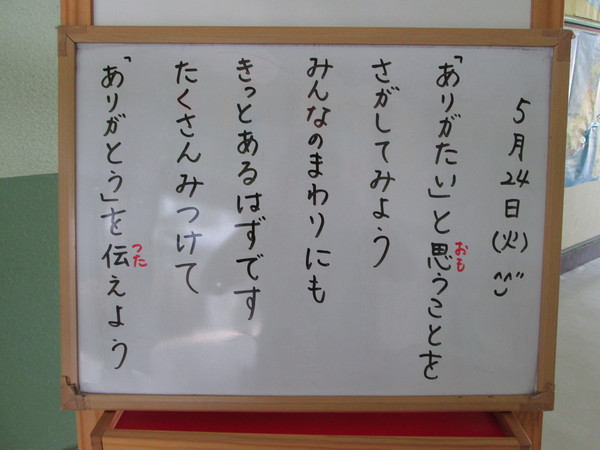 5月24日(火) ^^
「ありがたい」と思うことを
おも
さがしてみよう
みんなのまわりにも
きっとあるはずです
たくさんみつけて
「ありがとう」を伝えよう
つた